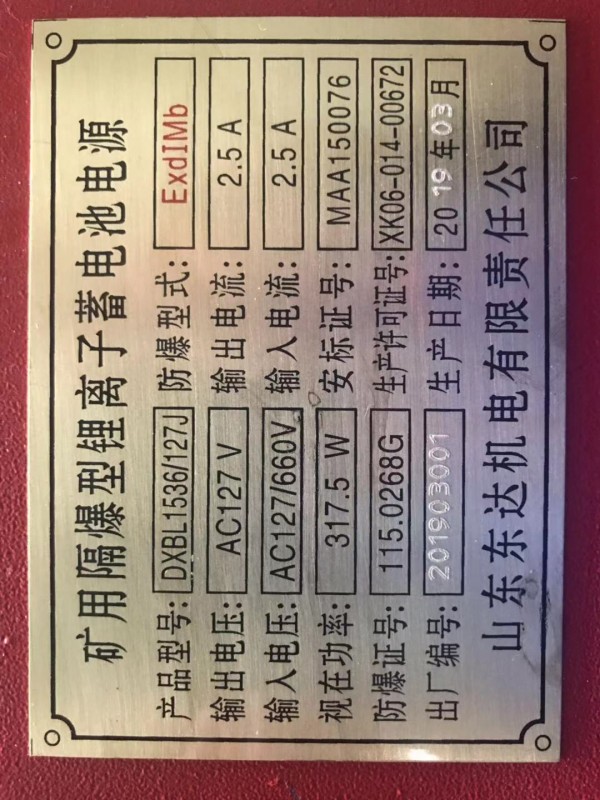 矿用隔爆型锂离子蓄电池电源
产品型号: DXBL1536/127J 防爆型式: ExdIMb
输出电压: AC127 V 输出电流: 2.5 A
输入电压: AC127/660V 输入电流: 2.5 A
视在功率: 317.5 W 安标证号: MAA150076
防爆证号: 115.0268G 生产许可证号: XK06-014-00672
出厂编号: 201903001 生产日期: 2019年03月
山东东达机电有限责任公司